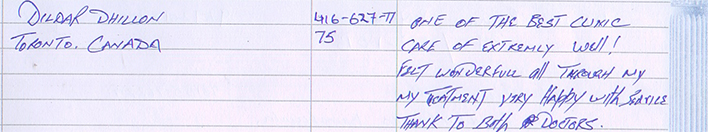 DILDAR DHILLON
TORONTO. CANADA
416-627-77
75
ONE OF THE BEST CLINIC
CARE OF EXTREMELY WELL!
FELT WONDERFULL all THROUGH MY
MY TREATMENT VERY HAPPY WITH SERVICE
THANK TO BOTH DOCTORS.